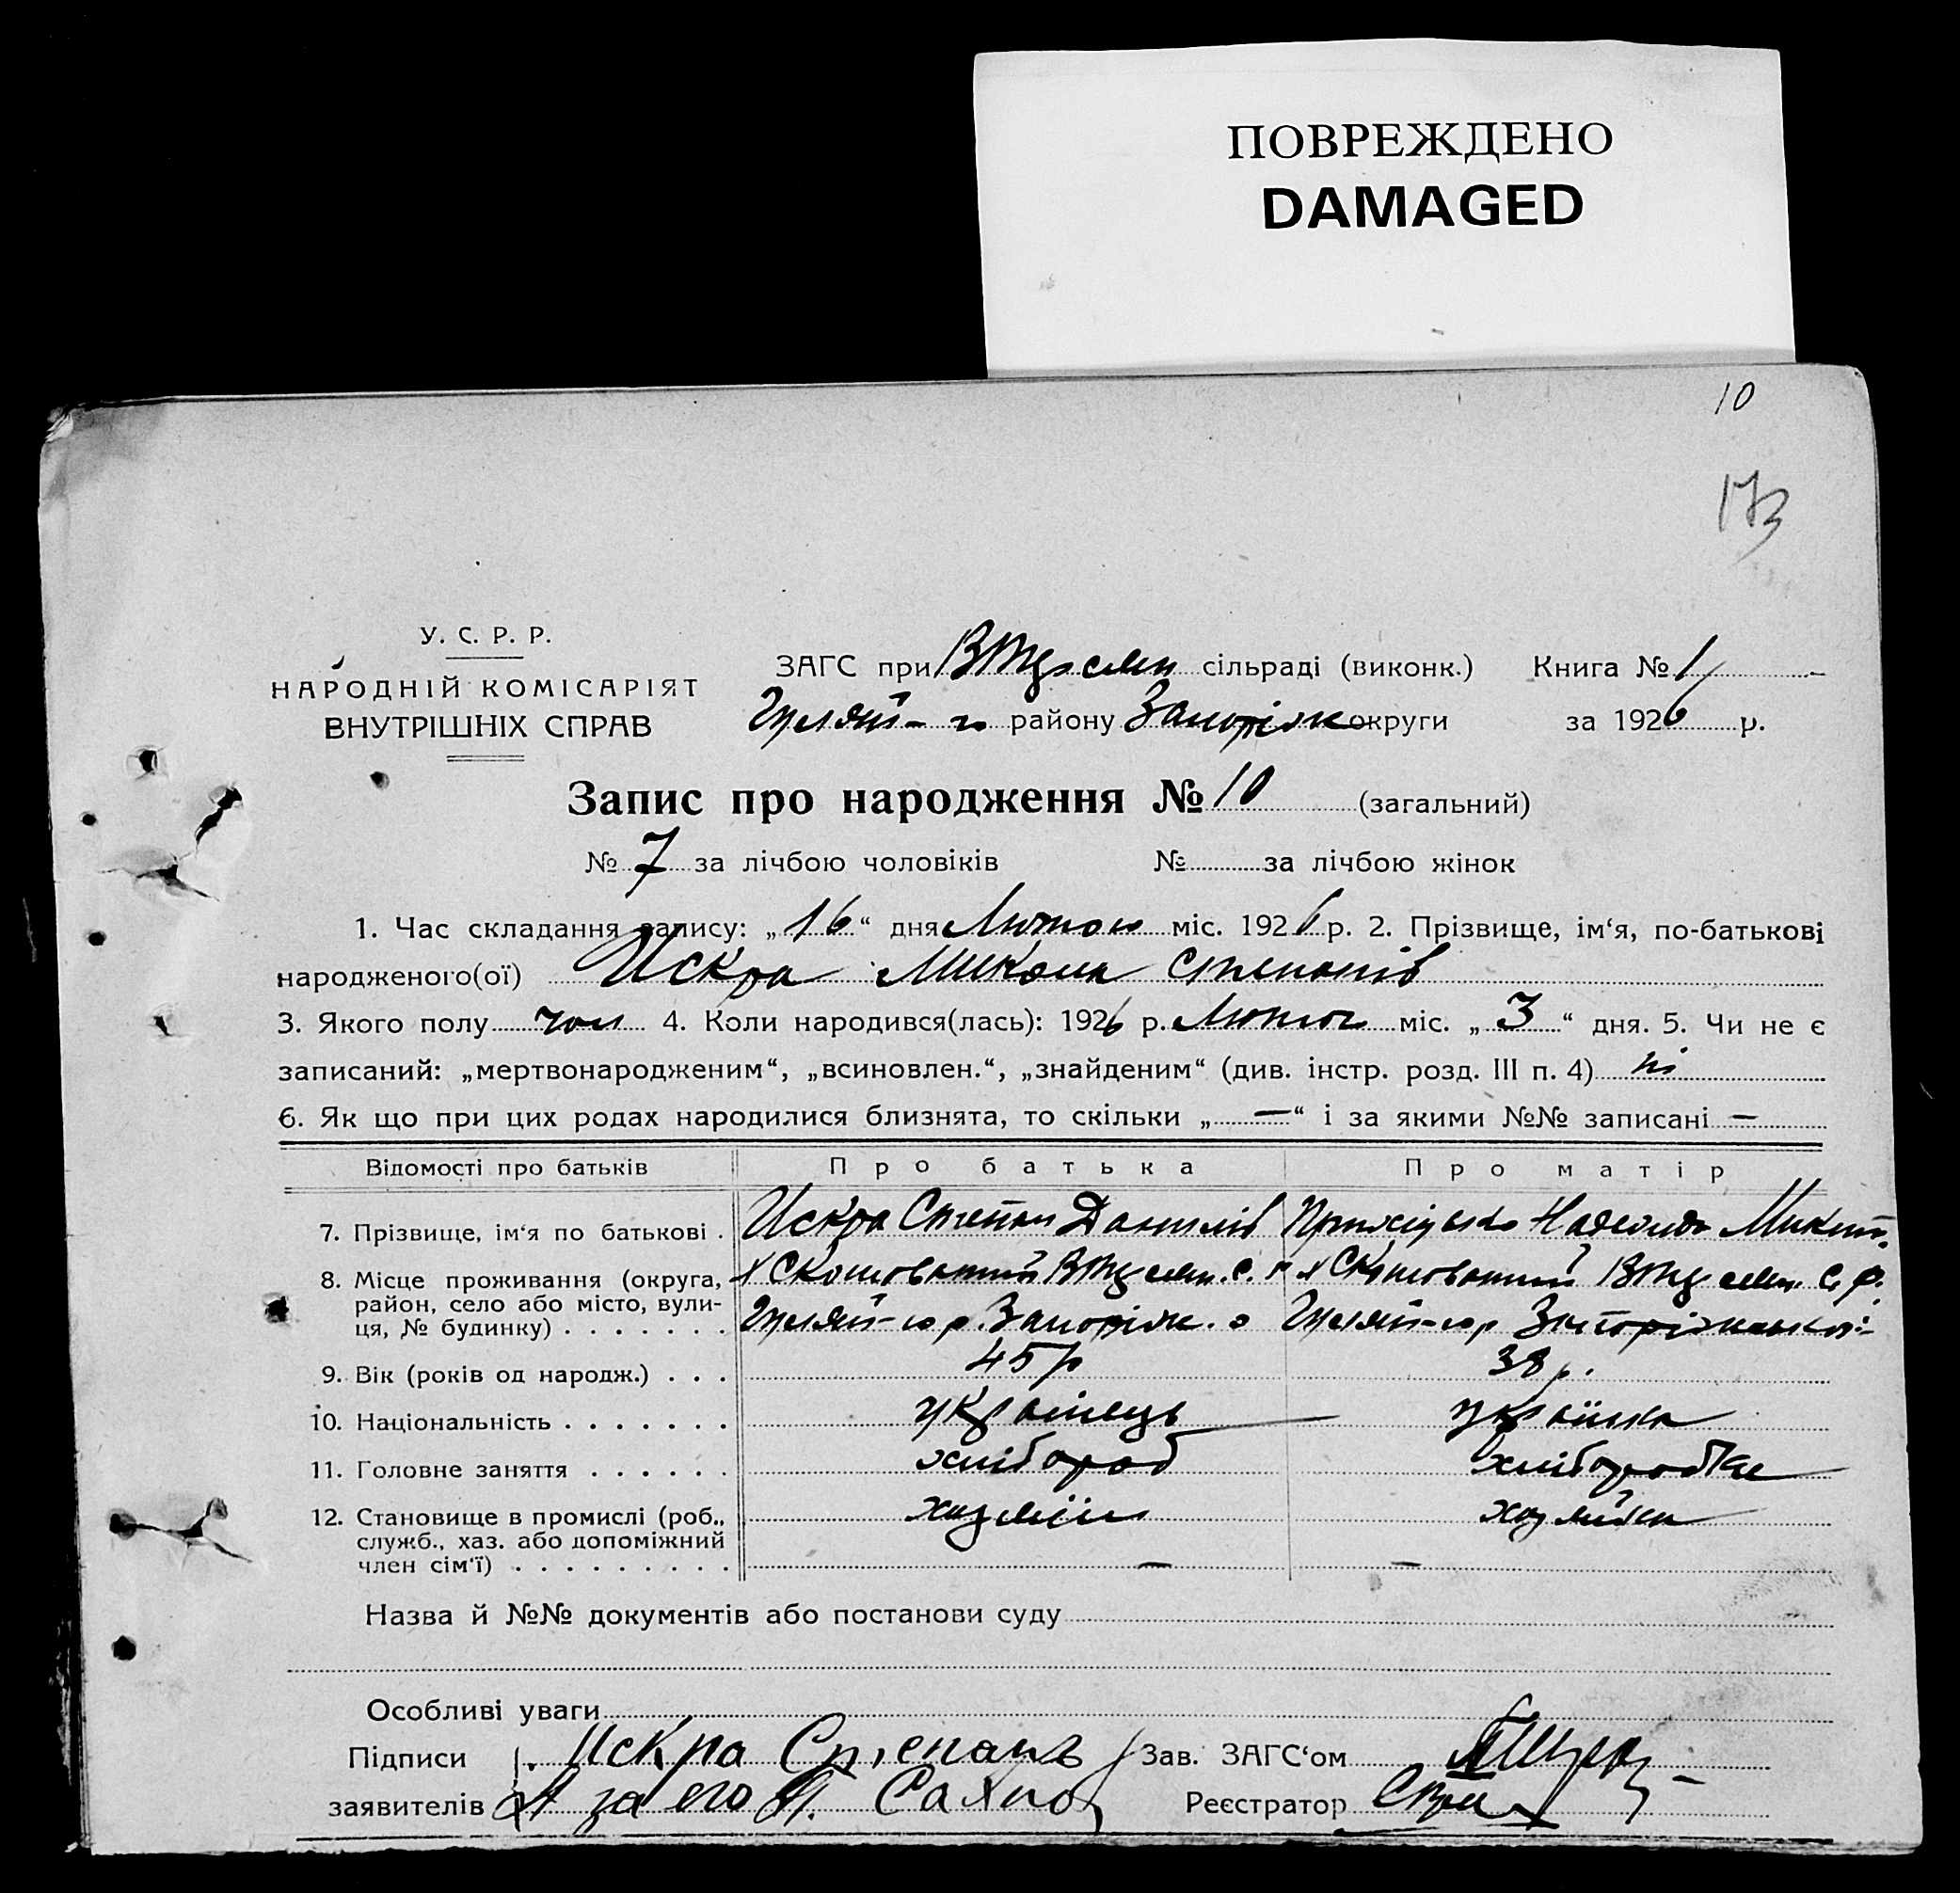 ПОВРЕЖДЕНО
DAMAGED
10
173
У. С. Р. Р.
НАРОДНІЙ КОМІСАРІЯТ
ВНУТРІШНІХ СПРАВ
ЗАГС при сільраді (виконк.) Книга № 1
Гуляй- району Запоріж округи за 1926 р.
Запис про народження № 10 (загальний)
№ 7 за лічбою чоловіків № за лічбою жінок
1. Час складання запису: „16“ дня Лютого міс. 1926 р. 2. Прізвище, ім‘я, по-батькові
народженого(ої) Искра Микола Степанів
3. Якого полу чол 4. Коли народився(лась): 1926 р. Лютого міс. „3“ дня. 5. Чи не є
записаний: „мертвонародженим“, „всиновлен.“, „знайденим“ (див. інстр. розд. III п. 4) ні
6. Як що при цих родах народилися близнята, то скільки „—“ і за якими №№ записані —
Відомості про батьків Про батька Про матір
7. Прізвище, ім‘я по батькові . Искра Степан Данилів Надежда Микит.
8. Місце проживання (округа,
район, село або місто, вули-
ця, № будинку) . . . . . . . Гуляй- р. Запоріж. о Гуляй- р Запоріжської
9. Вік (років од народж.) . . . 45 р 38 р.
10. Національність . . . . . . . українець українка
11. Головне заняття . . . . . . хлібороб хліборобка
12. Становище в промислі (роб.,
служб., хаз. або допоміжний
член сім‘ї) . . . . . . . . . хазяїн хазяйка
— —
Назва й №№ документів або постанови суду
Особливі уваги
Підписи Искра Степанъ Зав. ЗАГС‘ом
заявителів А за его Реєстратор